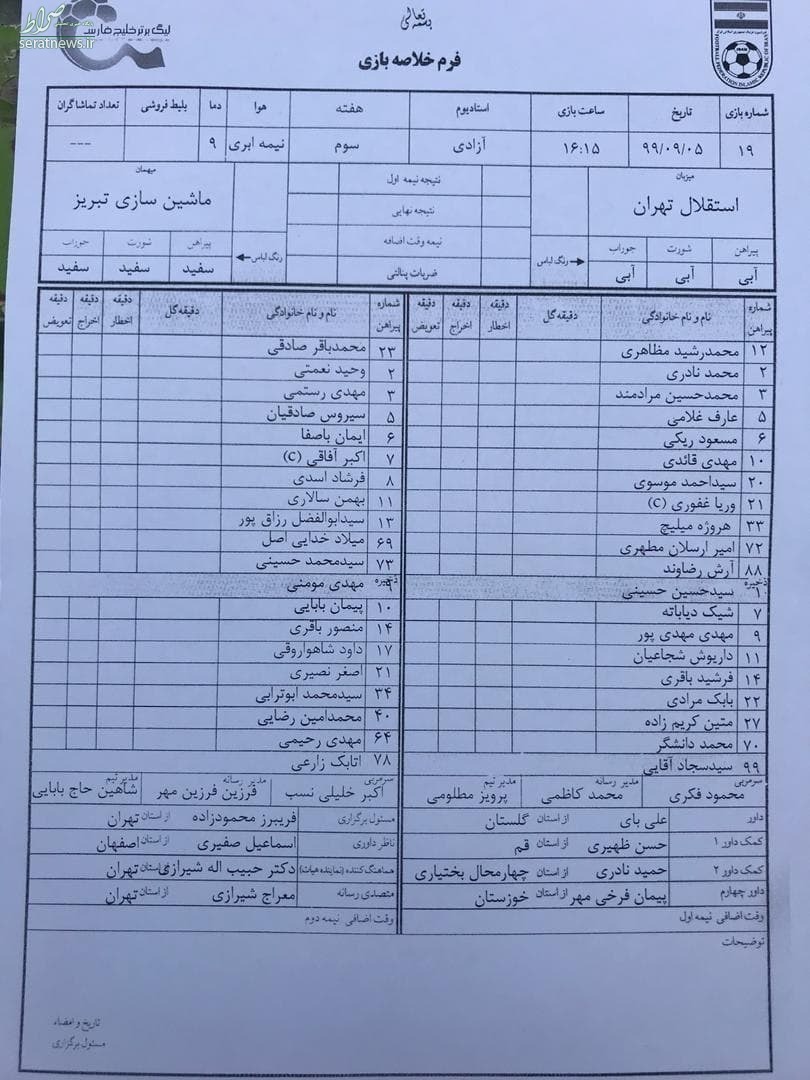 صراط
seratnews.ir
لیگ برتر خلیج فارس
بسمه تعالی
فرم خلاصه بازی
FOOTBALL FEDERATION ISLAMIC REPUBLIC OF IRAN
شماره بازی تاریخ ساعت بازی استادیوم هفته هوا دما بلیط فروشی تعداد تماشاگران
۱۹ ۹۹/۰۹/۰۵ ۱۶:۱۵ آزادی سوم نیمه ابری ۹ ---
میزبان
استقلال تهران
پیراهن شورت جوراب
آبی آبی آبی
رنگ لباس
نتیجه نیمه اول
نتیجه نهایی
نیمه وقت اضافه
ضربات پنالتی
میهمان
ماشین سازی تبریز
پیراهن شورت جوراب
سفید سفید سفید
رنگ لباس
شماره پیراهن نام و نام خانوادگی دقیقه گل دقیقه اخطار دقیقه اخراج دقیقه تعویض
۱۲ محمدرشید مظاهری
۲ محمد نادری
۳ محمدحسین مرادمند
۵ عارف غلامی
۶ مسعود ریگی
۱۰ مهدی قائدی
۲۰ سیداحمد موسوی
۲۱ وریا غفوری (C)
۳۳ هروژه میلیچ
۷۲ امیر ارسلان مطهری
۸۸ آرش رضاوند
ذخیره
۱ سیدحسین حسینی
۷ شیک دیاباته
۹ مهدی مهدی پور
۱۱ داریوش شجاعیان
۱۴ فرشید باقری
۲۲ بابک مرادی
۲۷ متین کریم زاده
۷۰ محمد دانشگر
۹۹ سیدسجاد آقایی
سرمربی محمود فکری مدیر رسانه محمد کاظمی مدیر تیم پرویز مظلومی
داور علی بای از استان گلستان
کمک داور ۱ حسن ظهیری از استان قم
کمک داور ۲ حمید نادری از استان چهارمحال بختیاری
داور چهارم پیمان فرخی مهر از استان خوزستان
وقت اضافی نیمه اول
توضیحات
شماره پیراهن نام و نام خانوادگی دقیقه گل دقیقه اخطار دقیقه اخراج دقیقه تعویض
۲۳ محمدباقر صادقی
۲ وحید نعمتی
۳ مهدی رستمی
۵ سیروس صادقیان
۶ ایمان باصفا
۷ اکبر آفاقی (C)
۸ فرشاد اسدی
۱۱ بهمن سالاری
۱۳ سیدابوالفضل رزاق پور
۶۹ میلاد خدایی اصل
۷۳ سیدمحمد حسینی
ذخیره
۹ مهدی مومنی
۱۰ پیمان بابایی
۱۴ منصور باقری
۱۷ داود شاهواروقی
۲۱ اصغر نصیری
۳۴ سیدمحمد ابوترابی
۴۰ محمدامین رضایی
۶۴ مهدی رحیمی
۷۸ اتابک زارعی
سرمربی اکبر خلیلی نسب مدیر رسانه فرزین فرزین مهر مدیر تیم شاهین حاج بابایی
مسئول برگزاری فریبرز محمودزاده از استان تهران
ناظر داوری اسماعیل صفیری از استان اصفهان
هماهنگ کننده (نماینده هیات) دکتر حبیب اله شیرازی از استان تهران
متصدی رسانه معراج شیرازی از استان تهران
وقت اضافی نیمه دوم
تاریخ و امضاء
مسئول برگزاری